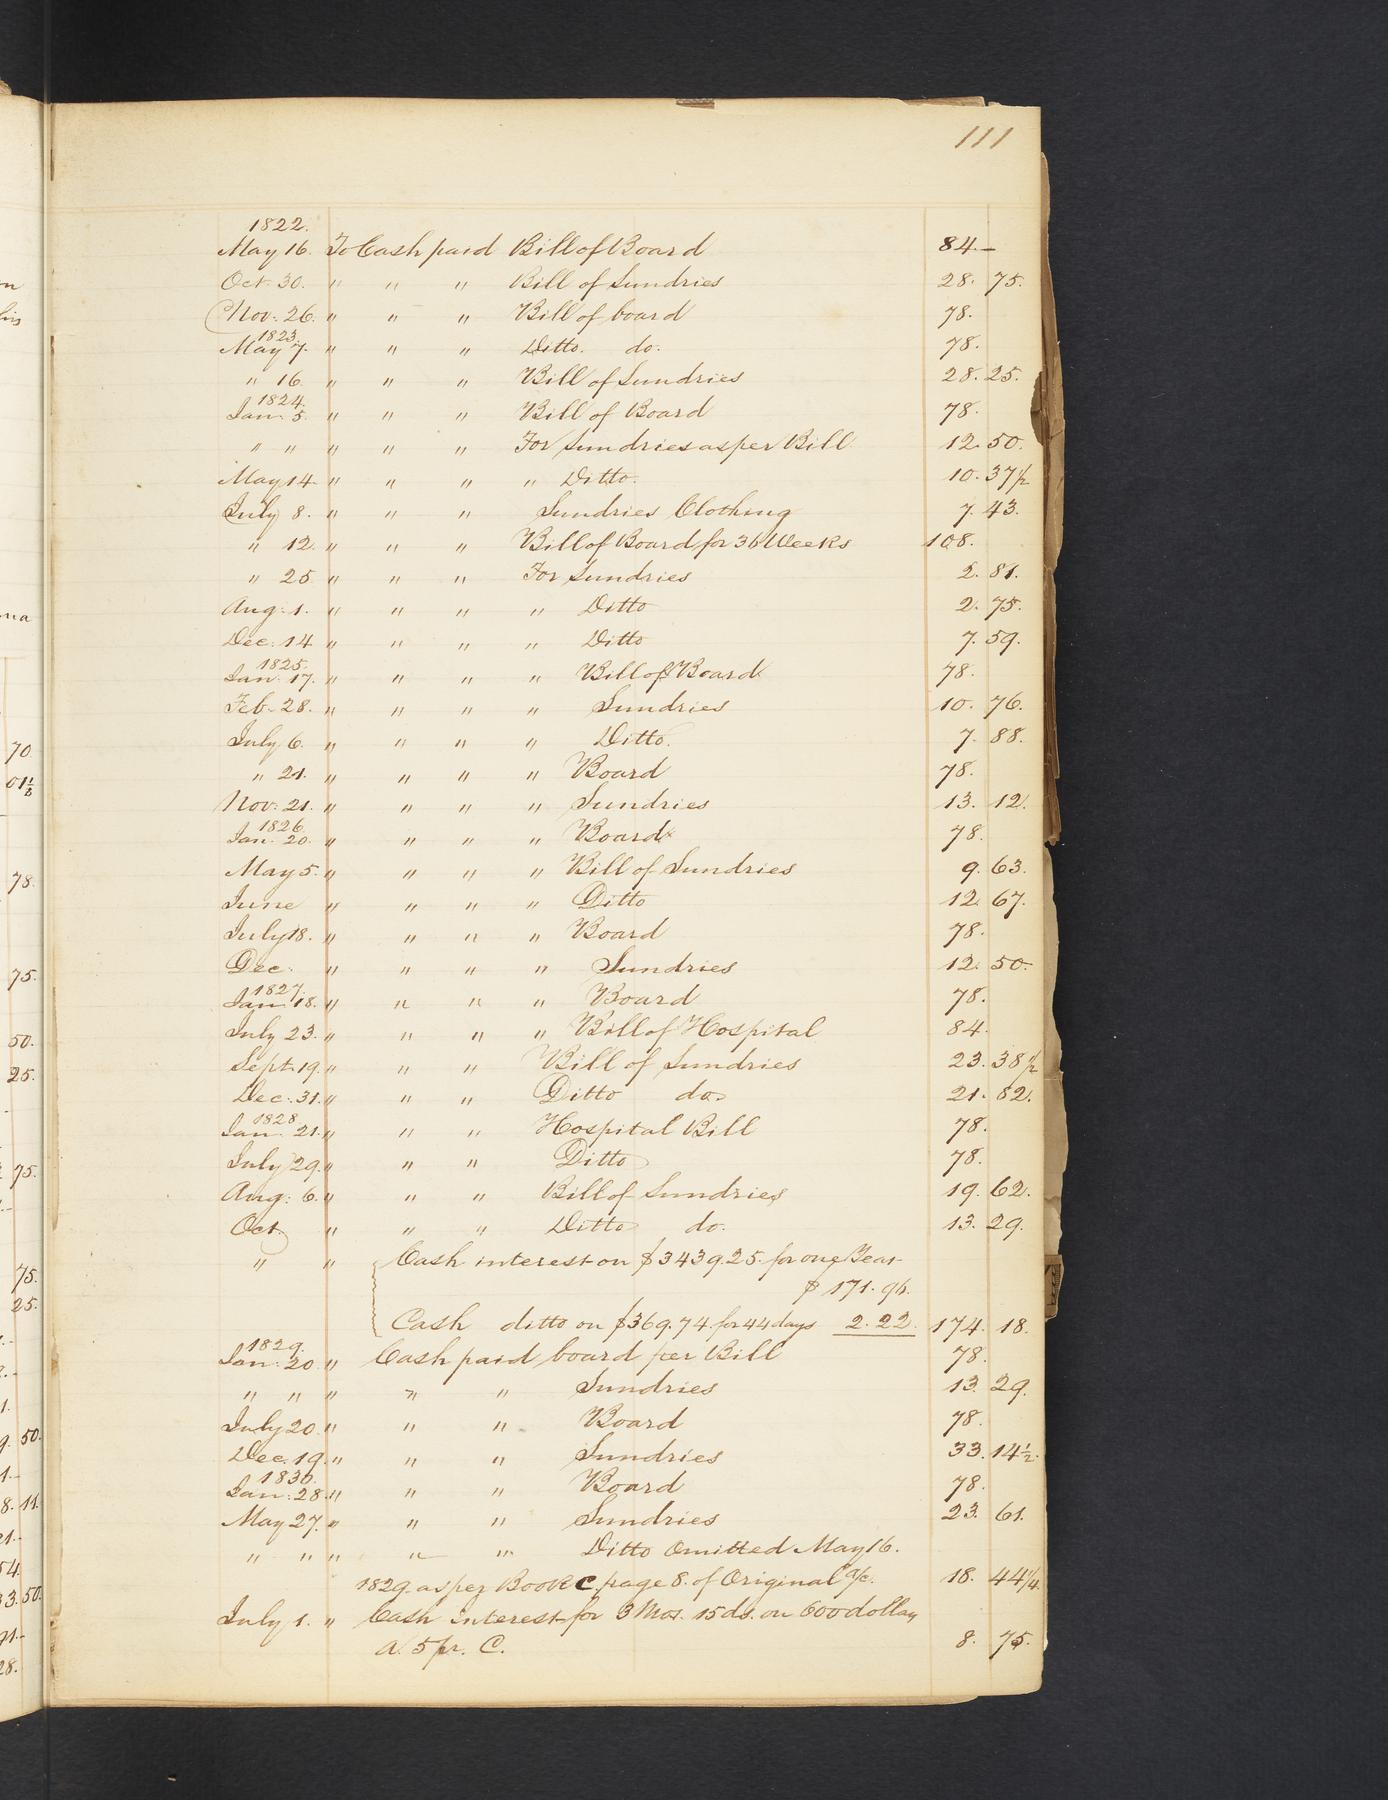 111
1822.
May 16. To Cash paid Bill of Board 84.-
Oct. 30. " " " Bill of Sundries 28. 75.
Nov. 26. " " " Bill of board 78.
1823.
May 7. " " " Ditto. do. 78.
" 16. " " " Bill of Sundries 28. 25.
1824.
Jan. 5. " " " Bill of Board 78.
" " " " " For Sundries as per Bill 12. 50.
May 14 " " " " Ditto. 10. 37 1/2
July 8. " " " Sundries Clothing 7. 43.
" 12. " " " Bill of Board for 36 Weeks 108.
" 25 " " " For Sundries 2. 81.
Aug: 1. " " " " Ditto 2. 75.
Dec: 14 " " " " Ditto 7. 59.
1825.
Jan. 17. " " " " Bill of Board 78.
Feb. 28. " " " " Sundries 10. 76.
July 6. " " " " Ditto. 7. 88.
" 21. " " " " Board 78.
Nov: 21. " " " " Sundries 13. 12.
1826.
Jan. 20. " " " " Board 78.
May 5. " " " " Bill of Sundries 9. 63.
June " " " " Ditto 12. 67.
July 18. " " " " Board 78.
Dec. " " " " Sundries 12. 50.
1827.
Jan. 18. " " " " Board 78.
July 23. " " " " Bill of Hospital 84.
Sept. 19. " " " Bill of Sundries 23. 38 1/2
Dec. 31. " " " Ditto do. 21. 82.
1828
Jan. 21. " " " Hospital Bill 78.
July 29. " " " Ditto 78.
Aug: 6. " " " Bill of Sundries 19. 62.
Oct. " " " Ditto do. 13. 29.
" " Cash interest on $3439.25. for one Year
$ 171. 96.
Cash ditto on $369.74 for 44 days 2. 22. 174. 18.
1829.
Jan: 20. " Cash paid board per Bill 78.
" " " " " Sundries 13. 29.
July 20. " " " Board 78.
Dec. 19. " " " Sundries 33. 14 1/2.
1830.
Jan: 28. " " " Board 78.
May 27. " " " Sundries 23. 61.
" " " " " Ditto Omitted May 16.
1829. as per Book C. page 8. of Original a/c. 18. 44 1/4.
July 1. " Cash Interest for 3 Mos. 15 ds. on 600 dollars
a. 5 pr. C. 8. 75.
70.
01 1/2
78.
75.
50.
25.
75.
75.
25.
50.
8. 11.
54.
33. 50.
28.